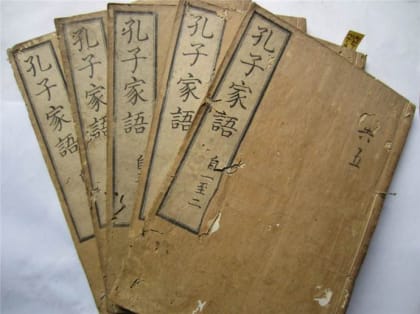 孔子家語
自
孔子家語
孔子家語
自
孔子家語
孔子家語
自一至二
共五